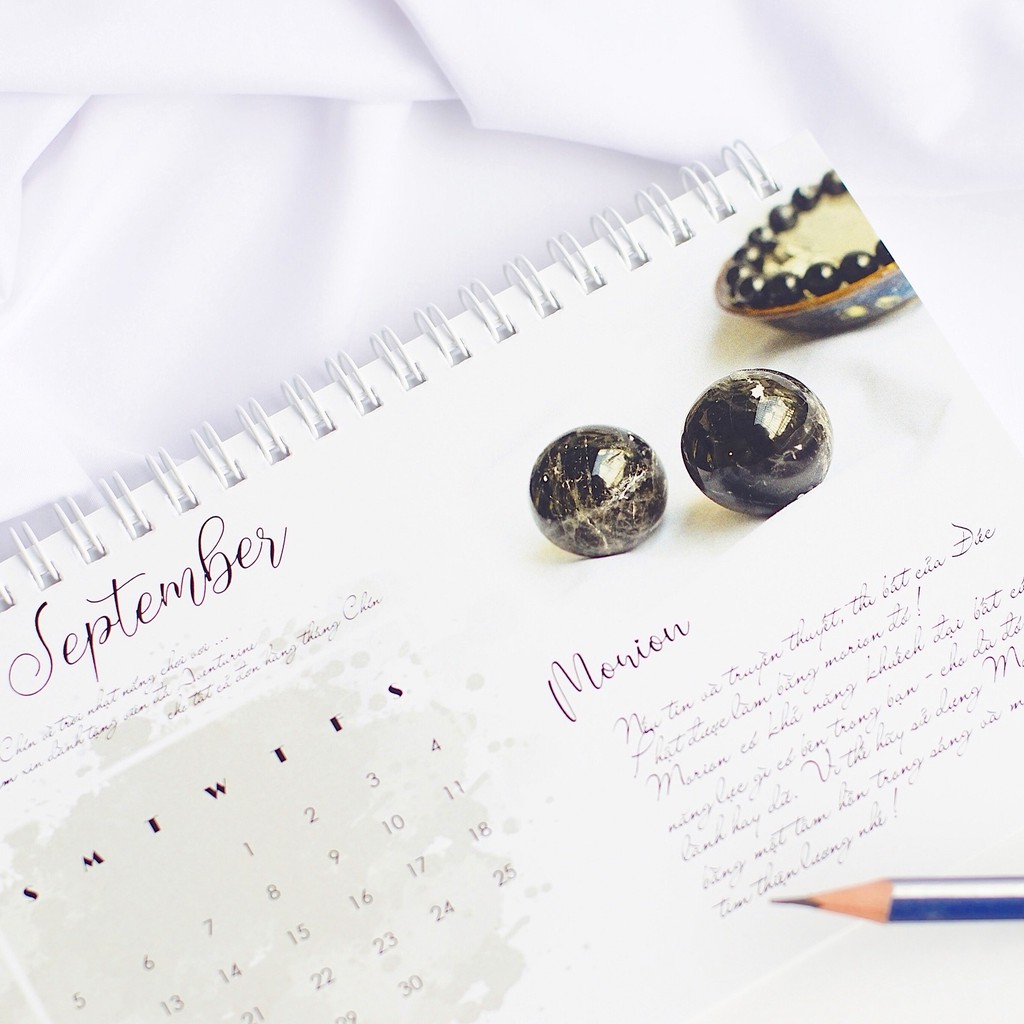 September
Chín về trời nhạt nắng chơi vơi ...
xin dành tặng viên đá Aventurine
cho tất cả đơn hàng tháng Chín
S M T W T F S
1 2 3 4
5 6 7 8 9 10 11
13 14 15 16 17 18
21 22 23 24 25
29 30
Morion
Nếu tin vào truyền thuyết, thì bát của Đức
Phật được làm bằng morion đó !
Morion có khả năng khuếch đại bất
năng lực gì có bên trong bạn - cho dù đó
lành hay dữ. Vì thế hãy sử dụng
bằng một tâm hồn trong sáng và
tim thiện lương nhé !